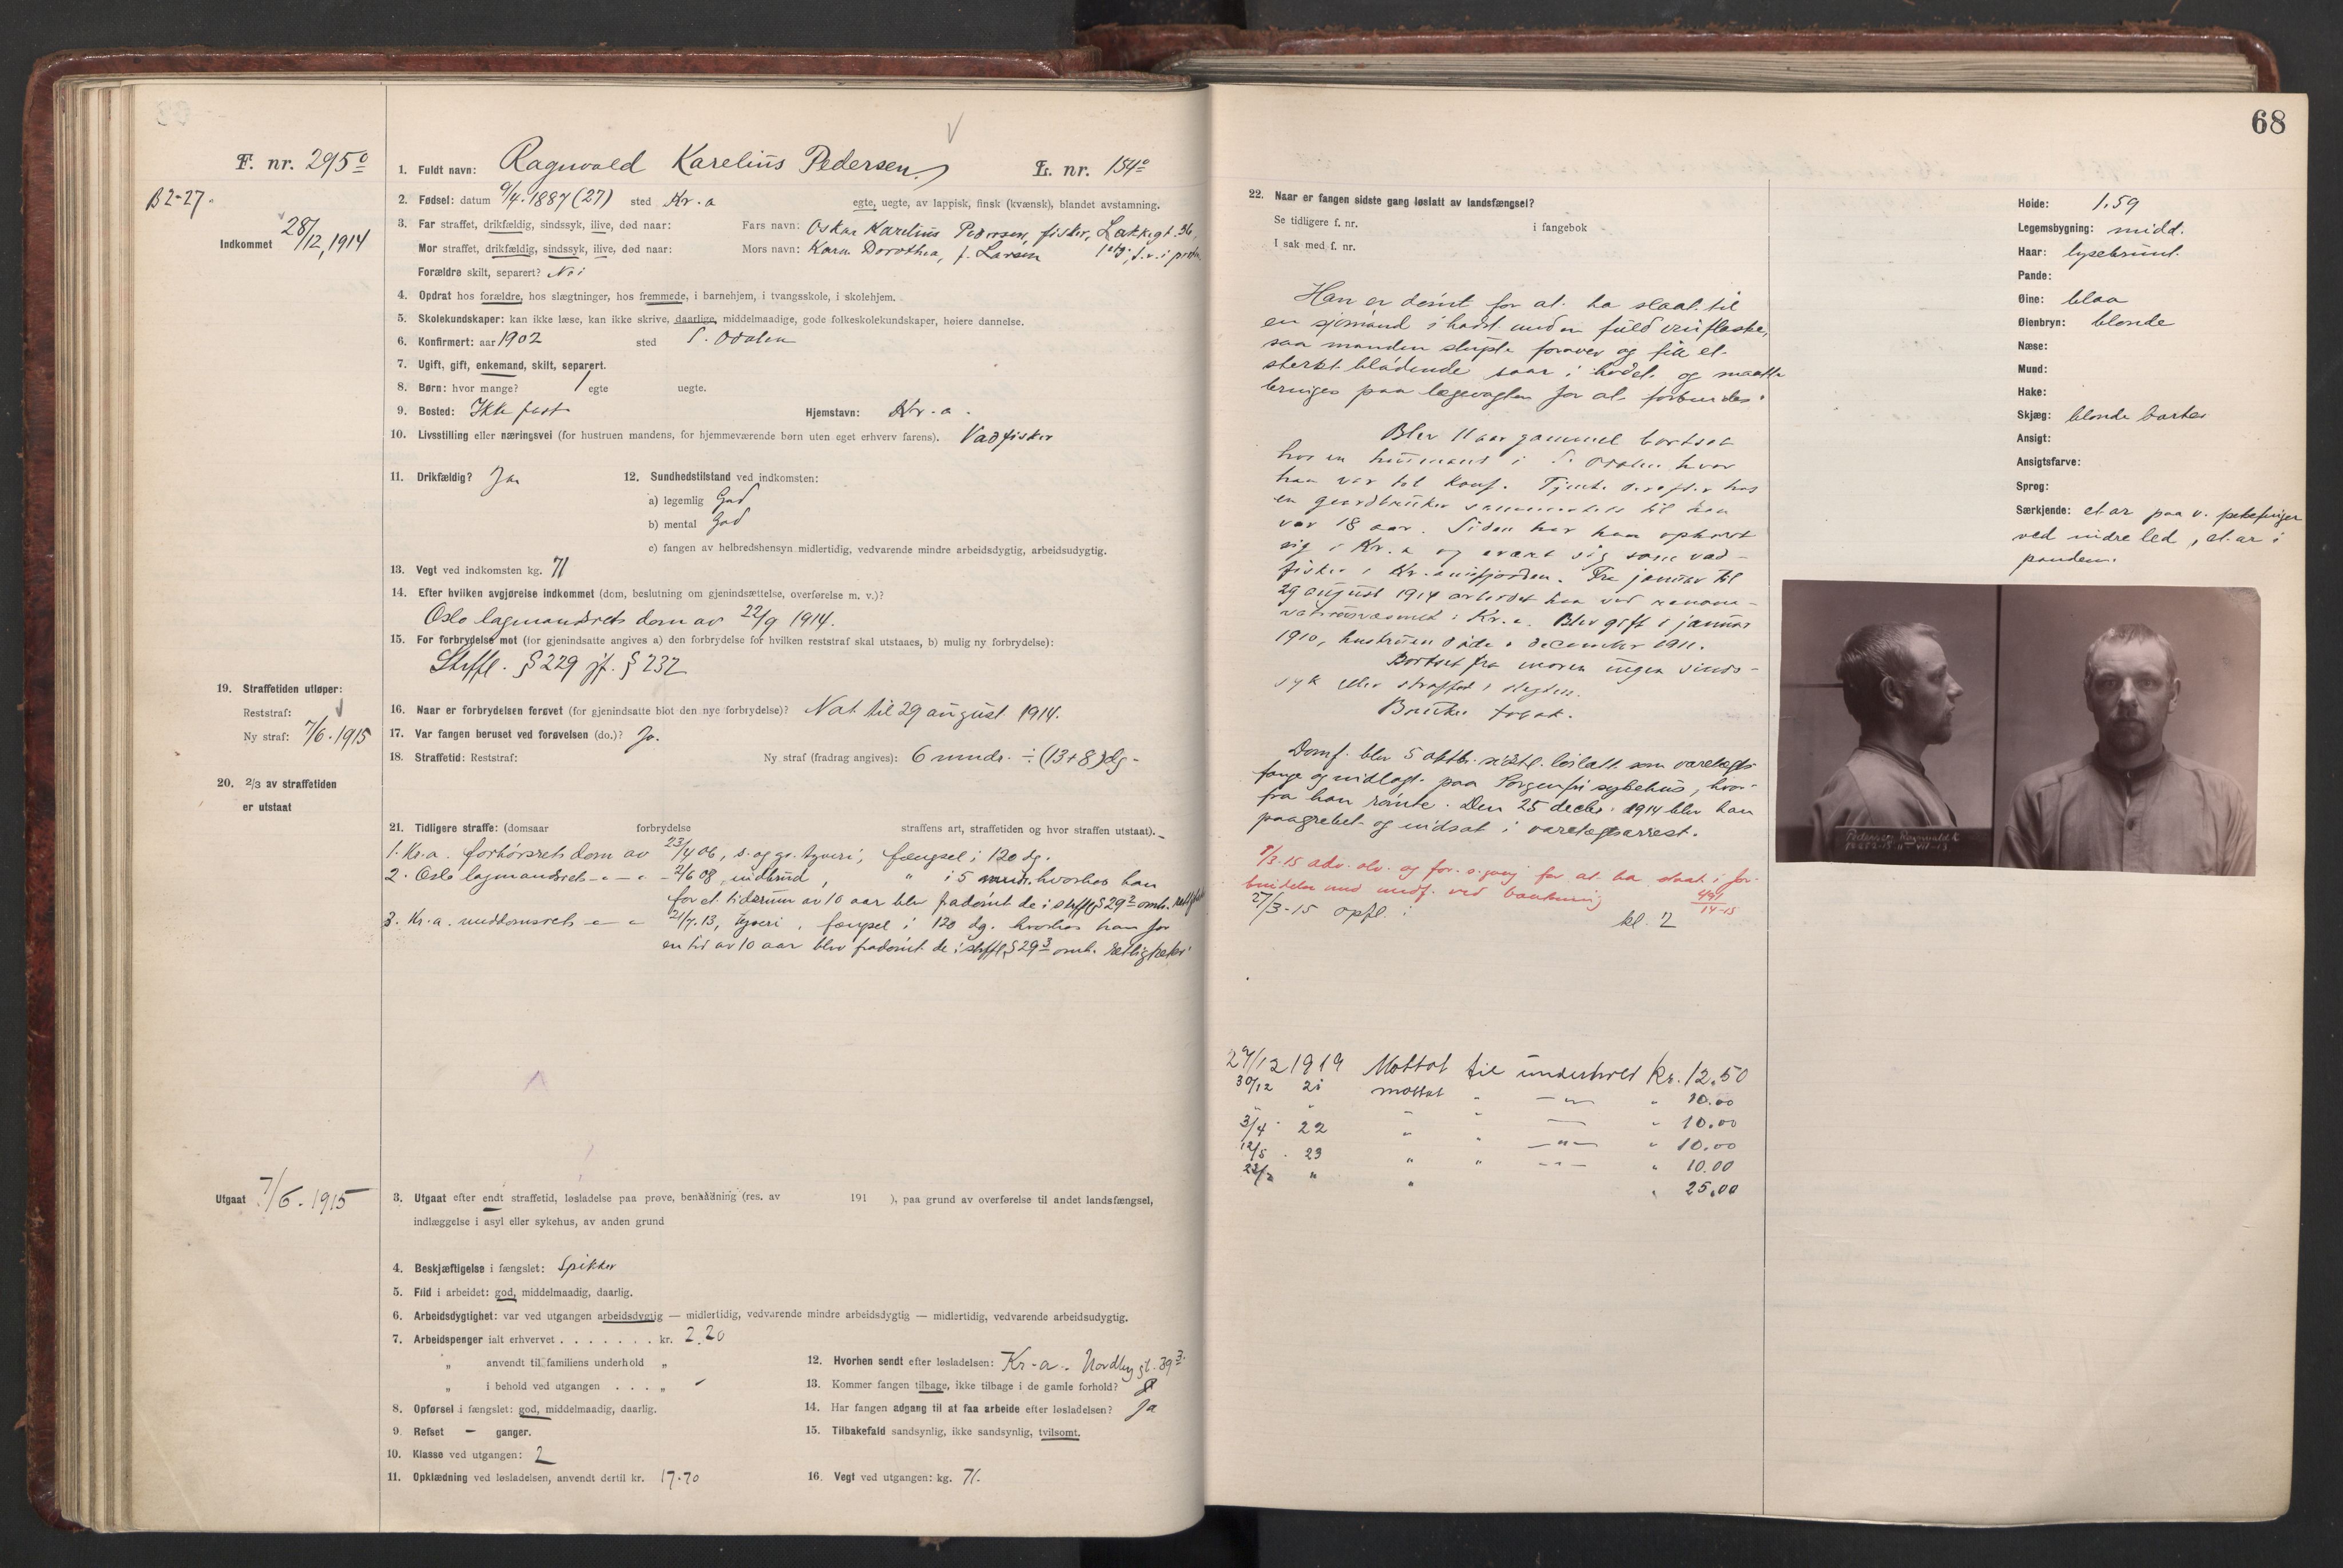 F. nr. 295⁰
B 2-27.
Indkommet 28/12, 1914
1. Fuldt navn: Ragnvald Karelius Pedersen.
L. nr. 154⁰
2. Fødsel: datum 9/4. 1887 (27) sted Kr.a egte, uegte, av lappisk, finsk (kvænsk), blandet avstamning.
3. Far straffet, drikfældig, sindssyk, ilive, død naar: Fars navn: Oskar Karelius Pedersen, fisker, Lakkegt. 36,
Mor straffet, drikfældig, sindssyk, ilive, død naar: Mors navn: Karen Dorothea, f. Larsen
Forældre skilt, separert? Nei
4. Opdrat hos forældre, hos slægtninger, hos fremmede, i barnehjem, i tvangsskole, i skolehjem.
5. Skolekundskaper: kan ikke læse, kan ikke skrive, daarlige, middelmaadige, gode folkeskolekundskaper, høiere dannelse.
6. Konfirmert: aar 1902 sted S. Odalen
7. Ugift, gift, enkemand, skilt, separert.
8. Børn: hvor mange? 1 egte uegte.
9. Bosted: Ikke fast Hjemstavn: Kr.a.
10. Livsstilling eller næringsvei (for hustruen mandens, for hjemmeværende børn uten eget erhverv farens). Vadfisker
11. Drikfældig? Ja 12. Sundhedstilstand ved indkomsten:
a) legemlig God
b) mental God
c) fangen av helbredshensyn midlertidig, vedvarende mindre arbeidsdygtig, arbeidsudygtig.
13. Vegt ved indkomsten kg. 71
14. Efter hvilken avgjørelse indkommet (dom, beslutning om gjenindsættelse, overførelse m. v.)?
Oslo lagmandsrets dom av 22/9 1914.
15. For forbrydelse mot (for gjenindsatte angives a) den forbrydelse for hvilken reststraf skal utstaaes, b) mulig ny forbrydelse):
Strffl. § 229 jf. § 232
16. Naar er forbrydelsen forøvet (for gjenindsatte blot den nye forbrydelse)? Nat til 29 august 1914.
17. Var fangen beruset ved forøvelsen (do.)? Ja.
18. Straffetid: Reststraf: Ny straf (fradrag angives): 6 mndr. ÷ (13+8) dg.
19. Straffetiden utløper:
Reststraf:
Ny straf: 7/6. 1915
20. 2/3 av straffetiden
er utstaat
21. Tidligere straffe: (domsaar forbrydelse straffens art, straffetiden og hvor straffen utstaat).
1. Kr.a. forhørsrets dom av 23/4 06, s. og gr. tyveri, fængsel i 120 dg.
2. Oslo lagmandsrets — " — " — 2/6 08, indbrud, " i 5 mndr. hvorhos han
for et tidsrum av 10 aar blev fradømt de i strffl. § 29 ² omh.
3. Kr.a. meddomsrets — " — 21/7. 13, tyveri, fængsel i 120 dg. hvorhos han for
en tid av 10 aar blev fradømt de i strffl. § 29 ³ omh. rettigheter.
Utgaat 7/6. 1915
3. Utgaat efter endt straffetid, løsladelse paa prøve, benaadning (res. av 191 ), paa grund av overførelse til andet landsfængsel,
indlæggelse i asyl eller sykehus, av anden grund
4. Beskjæftigelse i fængslet: Spikker
5. Flid i arbeidet: god, middelmaadig, daarlig.
6. Arbeidsdygtighet: var ved utgangen arbeidsdygtig — midlertidig, vedvarende mindre arbeidsdygtig — midlertidig, vedvarende arbeidsudygtig.
7. Arbeidspenger ialt erhvervet . . . . . . . kr. 2.20
„ anvendt til familiens underhold „
„ i behold ved utgangen . . . „
8. Opførsel i fængslet: god, middelmaadig, daarlig.
9. Refset - ganger.
10. Klasse ved utgangen: 2
11. Opklædning ved løsladelsen, anvendt dertil kr. 17.70
12. Hvorhen sendt efter løsladelsen: Kr-a. Nordbygt. 39 3.
13. Kommer fangen tilbage, ikke tilbage i de gamle forhold?
14. Har fangen adgang til at faa arbeide efter løsladelsen? Ja
15. Tilbakefald sandsynlig, ikke sandsynlig, tvilsomt.
16. Vegt ved utgangen: kg. 71.
68
22. Naar er fangen sidste gang løslatt av landsfængsel?
Se tidligere f. nr. i fangebok
I sak med f. nr.
Han er dømt for at ha slaat til
en sjømand i hodet med en fuld vinflaske,
saa manden stupte forover og fik et
sterkt blødende saar i hodet og maatte
bringes paa lægevagten for at forbindes.
Blev 11 aar gammel bortsat
hos en husmand i S. Odalen hvor
han var til konf. Tjente derefter hos
en gaardbruker sammesteds til han
var 18 aar. Siden har han opholdt
sig i Kr.a og ernært sig som vad-
fisker i Kr.aniafjorden. Fra januar til
29 august 1914 arbeidet han ved renova-
tionsvæsenet i Kr.a. Blev gift i januar
1910, hustruen døde i december 1911.
Bortset fra moren ingen sinds-
syk eller straffet i slegten.
Bruker tobak.
Domf. blev 5 oktbr. sidstl. løslatt som varetægts-
fange og indlagt paa Sorgenfri sykehus, hvor-
fra han rømte. Den 25 decbr. 1914 blev han
paagrebet og indsat i varetægtsarrest.
1/3-15 adv. alv. og for. s. gang for at ha staat i for-
bindelse med medf. ved bankning 491/14-15
27/3-15 opfl. i kl. 2
29/12 1919 Mottat til underhold Kr. 12.50
30/12 21 mottat " — " — " 10.00
3/4 22 " " — " 10.00
12/5 . 23 " " — " — " 10.00
" " " — " — " 10.00
" 25.00
Høide: 1.59
Legemsbygning: midd.
Haar: lysebrunt.
Pande:
Øine: blaa
Øienbryn: blonde
Næse:
Mund:
Hake:
Skjæg: blonde barter
Ansigt:
Ansigtsfarve:
Sprog:
Særkjende: et ar paa v. pekefinger
ved indre led, et ar i
panden.
Pedersen Ragnvald K.